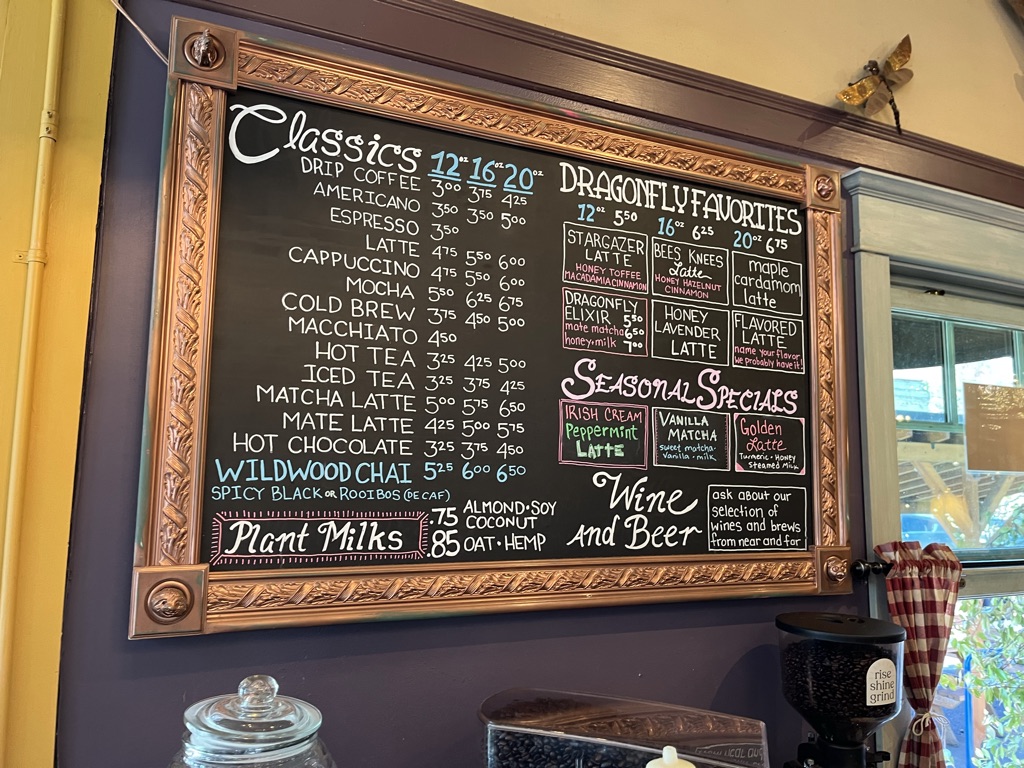 Classics 12oz 16oz 20oz
DRIP COFFEE 3⁰⁰ 3⁷⁵ 4²⁵
AMERICANO 3⁵⁰ 3⁵⁰ 5⁰⁰
ESPRESSO 3⁵⁰
LATTE 4⁷⁵ 5⁵⁰ 6⁰⁰
CAPPUCCINO 4⁷⁵ 5⁵⁰ 6⁰⁰
MOCHA 5⁵⁰ 6²⁵ 6⁷⁵
COLD BREW 3⁷⁵ 4⁵⁰ 5⁰⁰
MACCHIATO 4⁵⁰
HOT TEA 3²⁵ 4²⁵ 5⁰⁰
ICED TEA 3²⁵ 3⁷⁵ 4²⁵
MATCHA LATTE 5⁰⁰ 5⁷⁵ 6⁵⁰
MATE LATTE 4²⁵ 5⁰⁰ 5⁷⁵
HOT CHOCOLATE 3²⁵ 3⁷⁵ 4⁵⁰
WILDWOOD CHAI 5²⁵ 6⁰⁰ 6⁵⁰
SPICY BLACK OR ROOIBOS (DECAF)
Plant Milks
.75 ALMOND•SOY
COCONUT
.85 OAT•HEMP
DRAGONFLY FAVORITES
12oz 5⁵⁰ 16oz 6²⁵ 20oz 6⁷⁵
STARGAZER
LATTE
HONEY TOFFEE
MACADAMIA CINNAMON
BEES KNEES
Latte
HONEY HAZELNUT
CINNAMON
maple
cardamom
latte
DRAGONFLY
ELIXIR 5⁵⁰
mate matcha 6⁵⁰
honey•milk 7⁰⁰
HONEY
LAVENDER
LATTE
FLAVORED
LATTE
name your flavor,
we probably have it!
SEASONAL SPECIALS
IRISH CREAM
Peppermint
LATTE
VANILLA
MATCHA
sweet matcha•
vanilla•milk
Golden
Latte
Turmeric•Honey
Steamed Milk
Wine
AND Beer
ask about our
selection of
wines and brews
from near and far
rise
shine
grind